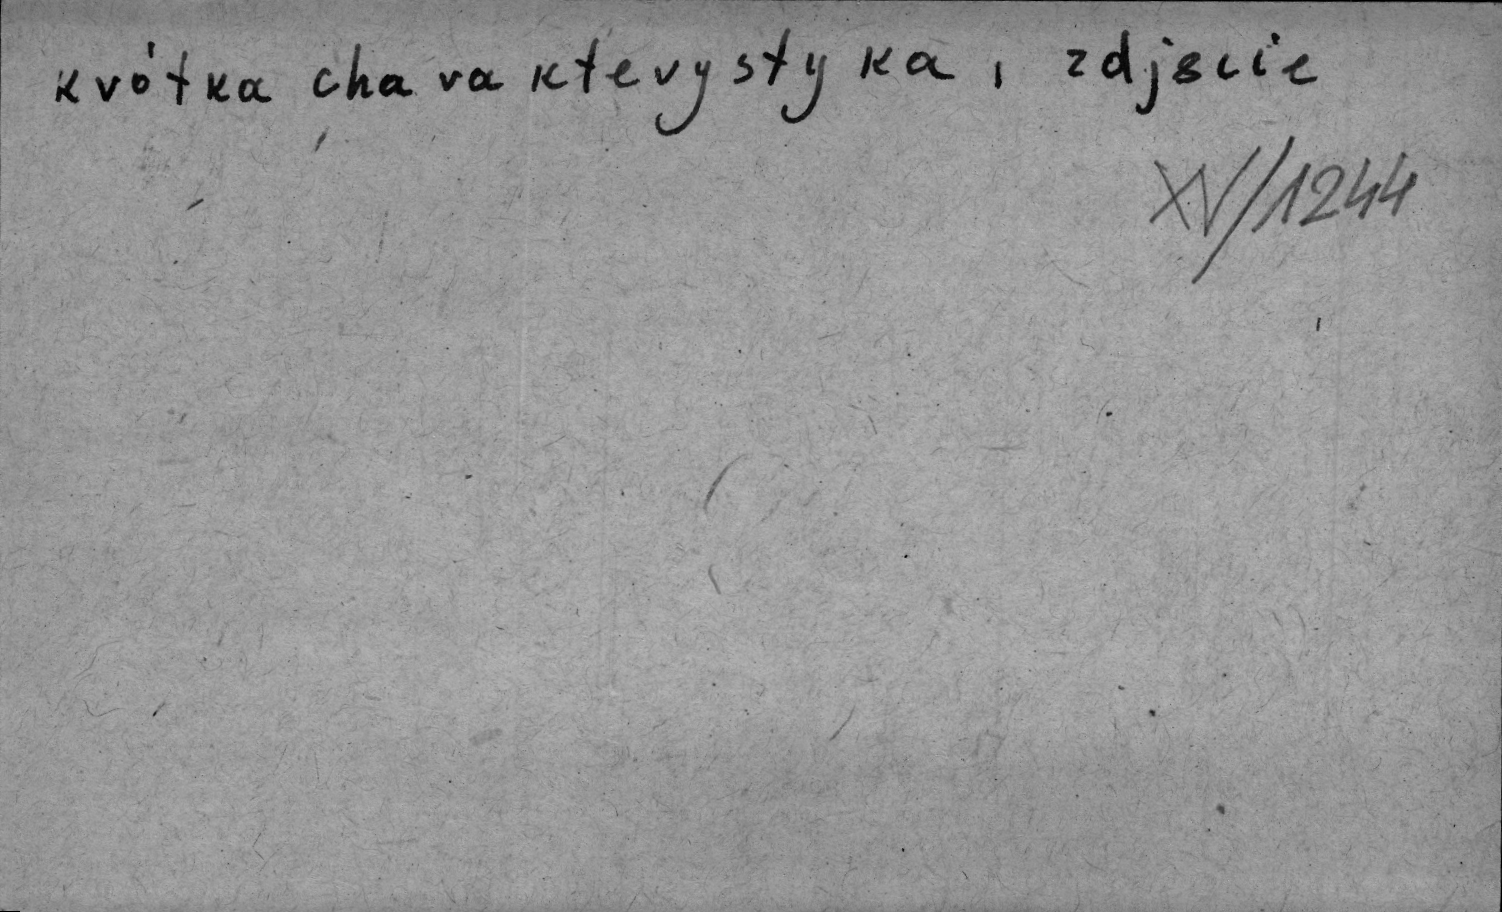 krótka charakterystyka, zdjęcie
XV/1244